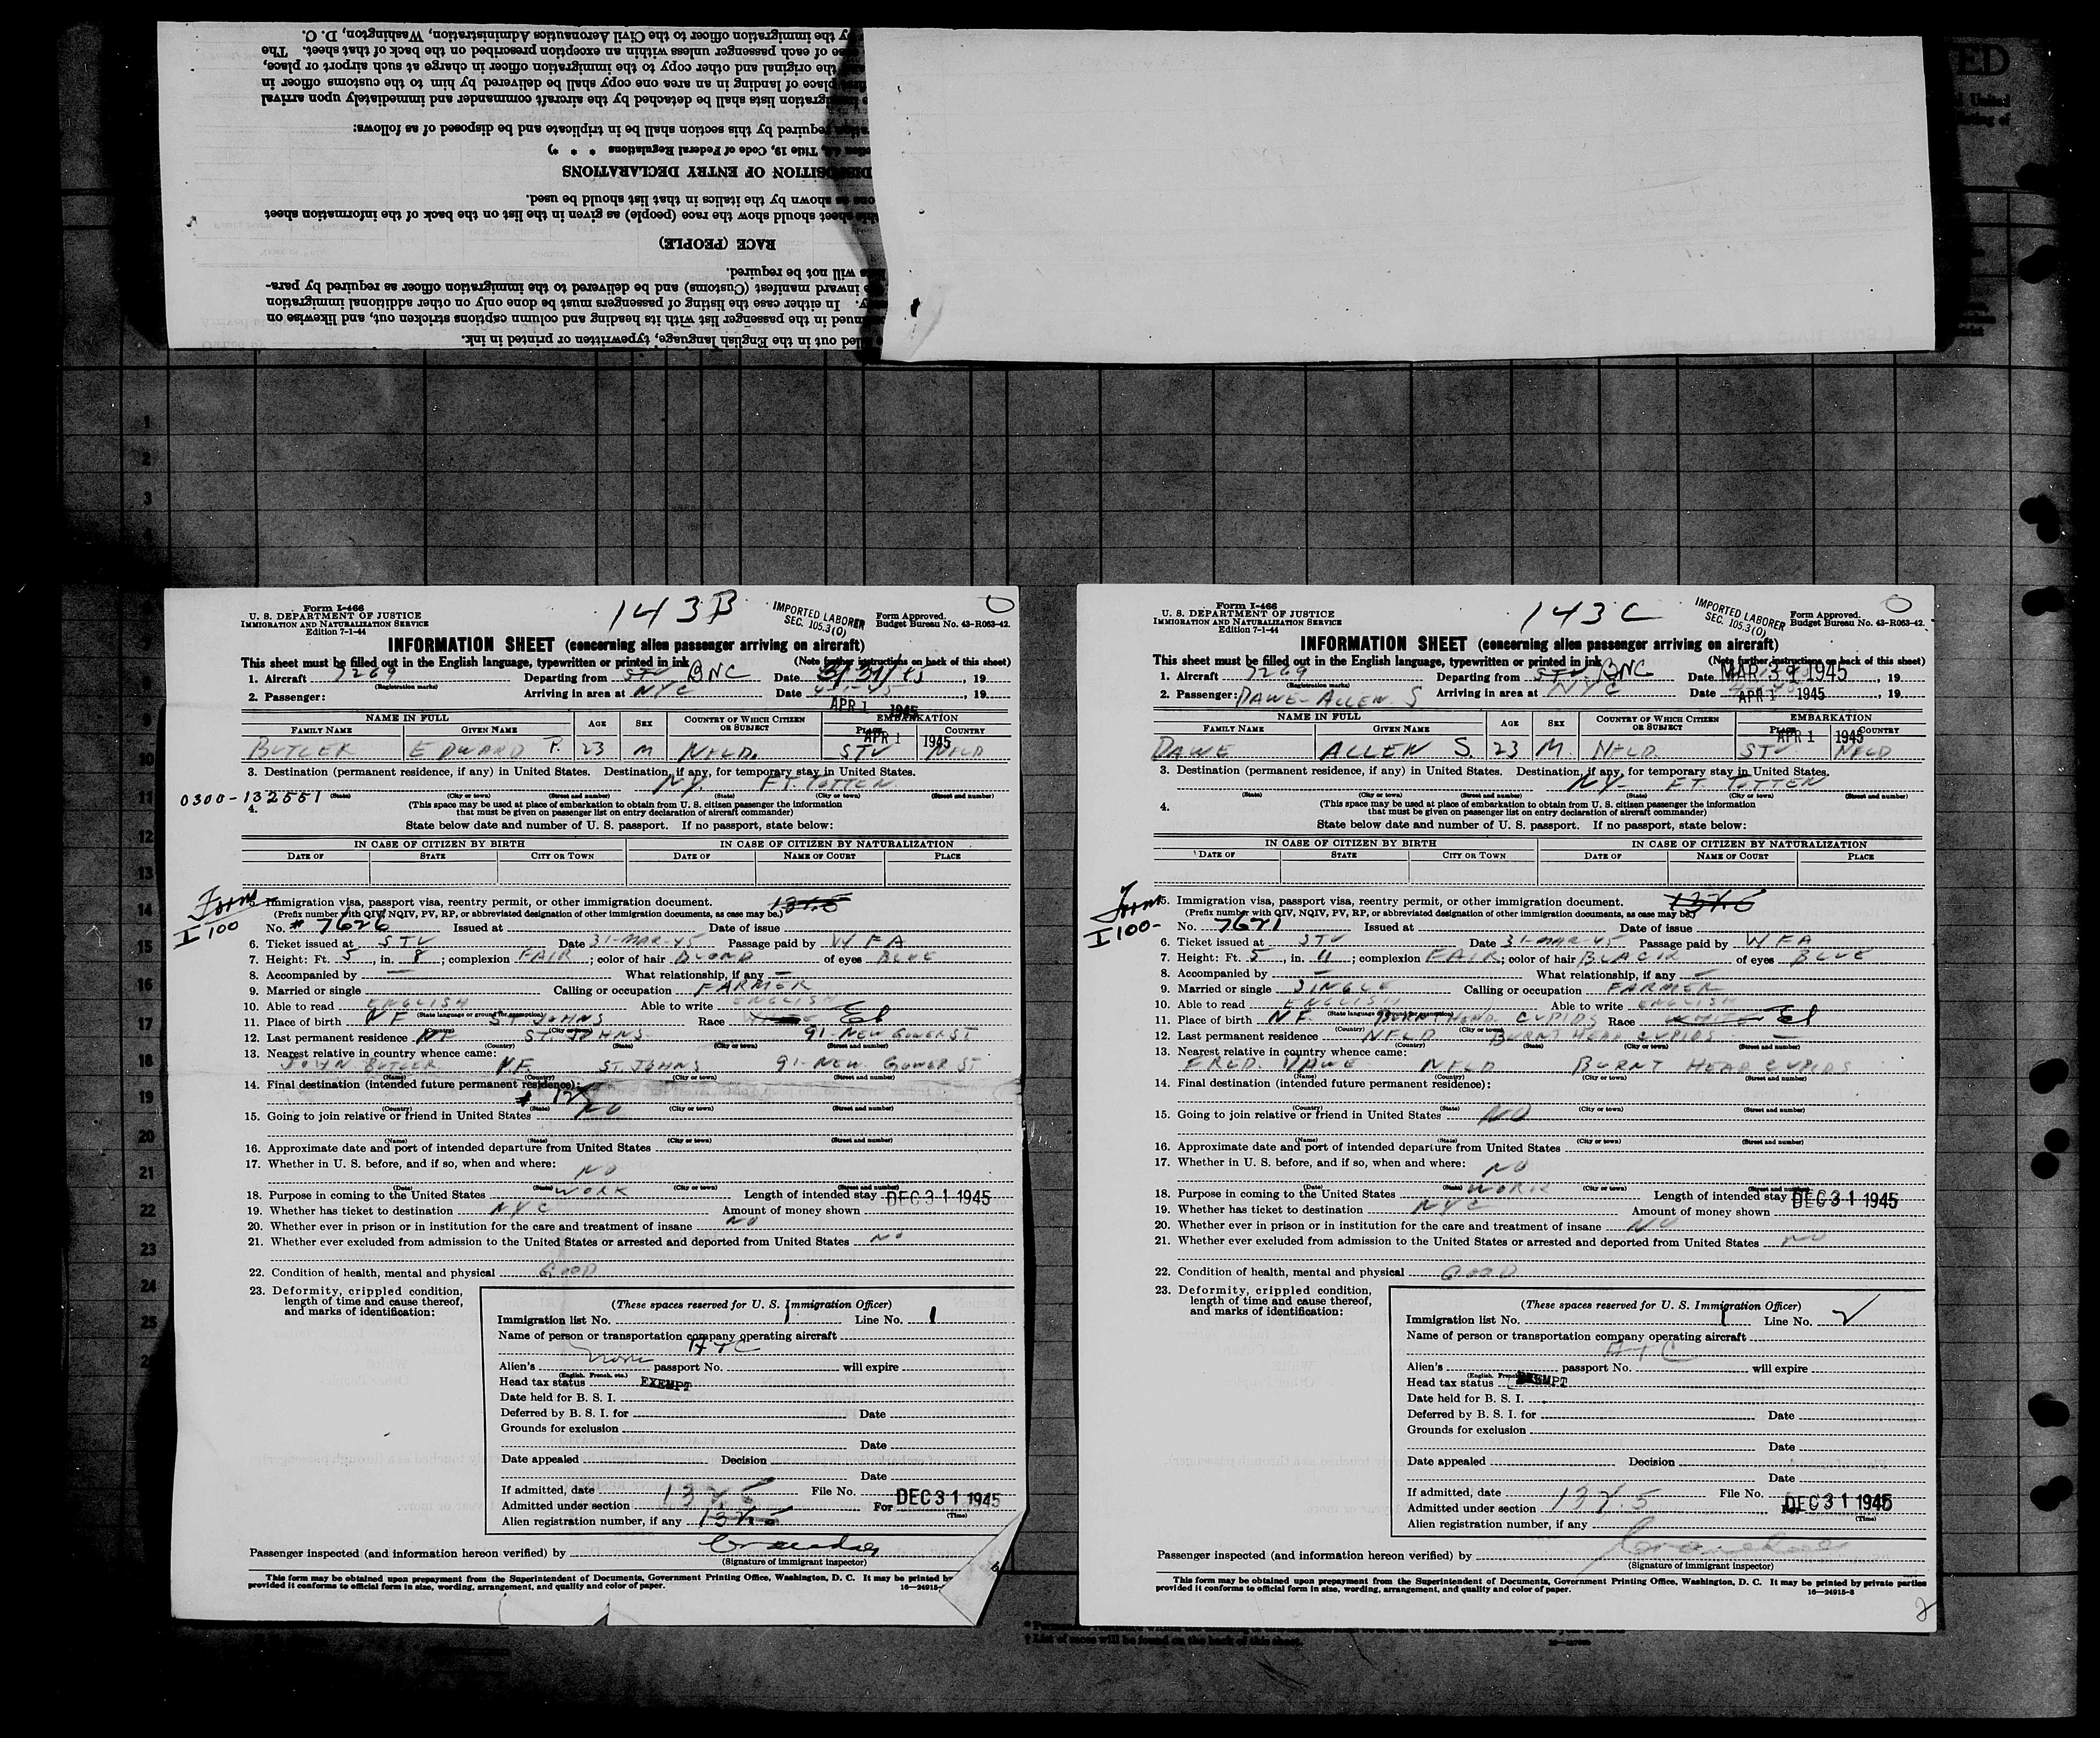 by the immigration officer to the Civil Aeronautics Administration, Washington, D. C.
of each passenger unless within an exception prescribed on the back of that sheet. The
the original and other copy to the immigration officer in charge at such airport or place,
place of landing in an area one copy shall be delivered by him to the customs officer in
immigration lists shall be detached by the aircraft commander and immediately upon arrival
required by this section shall be in triplicate and be disposed of as follows:
Title 19, Code of Federal Regulations * * *)
DISPOSITION OF ENTRY DECLARATIONS
as shown by the italics in that list should be used.
sheet should show the race (people) as given in the list on the back of the information sheet
RACE (PEOPLE)
will not be required.
inward manifest (Customs) and be delivered to the immigration officer as required by para-
In either case the listing of passengers must be done only on other additional immigration
in the passenger list with its heading and column captions stricken out, and likewise on
out in the English language, typewritten or printed in ink.
Form I-466
U. S. DEPARTMENT OF JUSTICE
IMMIGRATION AND NATURALIZATION SERVICE
Edition 7-1-44
143B
IMPORTED LABORER
SEC. 105.3(0)
Form Approved.
Budget Bureau No. 43-R063-42.
INFORMATION SHEET (concerning alien passenger arriving on aircraft)
This sheet must be filled out in the English language, typewritten or printed in ink
(Note further instructions on back of this sheet)
1. Aircraft 7269 Departing from STV BNC Date 3/31/45, 19
(Registration marks)
2. Passenger: Arriving in area at NYC Date 4-1-45, 19
APR 1 1945
NAME IN FULL AGE SEX COUNTRY OF WHICH CITIZEN OR SUBJECT EMBARKATION
FAMILY NAME GIVEN NAME PLACE COUNTRY
APR 1 1945
BUTLER EDWARD P. 23 M NFLD. STV NFLD
3. Destination (permanent residence, if any) in United States. Destination, if any, for temporary stay in United States.
NY. FT. TOTTEN
0300-132551 (State) (City or town) (Street and number) (State) (City or town) (Street and number)
4. (This space may be used at place of embarkation to obtain from U. S. citizen passenger the information
that must be given on passenger list on entry declaration of aircraft commander)
State below date and number of U. S. passport. If no passport, state below:
IN CASE OF CITIZEN BY BIRTH IN CASE OF CITIZEN BY NATURALIZATION
DATE OF STATE CITY OR TOWN DATE OF NAME OF COURT PLACE
Form I 100
Immigration visa, passport visa, reentry permit, or other immigration document.
(Prefix number with QIV, NQIV, PV, RP, or abbreviated designation of other immigration documents, as case may be.)
No. # 7626 Issued at Date of issue
6. Ticket issued at STV Date 31-MAR-45 Passage paid by WFA
7. Height: Ft. 5, in. 8; complexion FAIR; color of hair BLOND of eyes BLUE
8. Accompanied by — What relationship, if any —
9. Married or single Calling or occupation FARMER
10. Able to read ENGLISH Able to write ENGLISH
(State language or ground for exemption)
11. Place of birth NF ST JOHNS Race WHITE
(Country) (City or town)
12. Last permanent residence NF ST. JOHNS 91-NEW GOWER ST
(Country) (State) (City or town) (Street and number)
13. Nearest relative in country whence came:
JOHN BUTLER NF ST JOHNS 91-NEW. GOWER ST.
(Name) (Country) (City or town) (Street and number)
14. Final destination (intended future permanent residence):
(Country) (State) (City or town) (Street and number)
15. Going to join relative or friend in United States NO
(Name) (State) (City or town) (Street and number)
16. Approximate date and port of intended departure from United States
17. Whether in U. S. before, and if so, when and where:
NO
(Date) (State) (City or town) (Street and number)
18. Purpose in coming to the United States WORK Length of intended stay DEC 31 1945
19. Whether has ticket to destination NYC Amount of money shown
20. Whether ever in prison or in institution for the care and treatment of insane NO
21. Whether ever excluded from admission to the United States or arrested and deported from United States NO
22. Condition of health, mental and physical GOOD
23. Deformity, crippled condition,
length of time and cause thereof,
and marks of identification:
(These spaces reserved for U. S. Immigration Officer)
Immigration list No. 1 Line No. 1
Name of person or transportation company operating aircraft
ATC
Alien's none passport No. will expire
(English, French, etc.)
Head tax status EXEMPT
Date held for B. S. I.
Deferred by B. S. I. for Date
Grounds for exclusion
Date
Date appealed Decision
Date
If admitted, date File No.
Admitted under section For DEC 31 1945
(Time)
Alien registration number, if any
Passenger inspected (and information hereon verified) by
(Signature of immigrant inspector)
This form may be obtained upon prepayment from the Superintendent of Documents, Government Printing Office, Washington, D. C. It may be printed by
provided it conforms to official form in size, wording, arrangement, and quality and color of paper.
16—24915-
Form I-466
U. S. DEPARTMENT OF JUSTICE
IMMIGRATION AND NATURALIZATION SERVICE
Edition 7-1-44
143C
IMPORTED LABORER
SEC. 105.3(0)
Form Approved.
Budget Bureau No. 43-R063-42.
INFORMATION SHEET (concerning alien passenger arriving on aircraft)
This sheet must be filled out in the English language, typewritten or printed in ink
(Note further instructions on back of this sheet)
1. Aircraft 7269 Departing from STV. BNC Date MAR 31 1945, 19
(Registration marks)
2. Passenger: DAWE-ALLEN. S Arriving in area at NYC Date APR 1 1945, 19
NAME IN FULL AGE SEX COUNTRY OF WHICH CITIZEN OR SUBJECT EMBARKATION
FAMILY NAME GIVEN NAME PLACE COUNTRY
APR 1 1945
DAWE ALLEN S. 23 M. NFLD. STV NFLD
3. Destination (permanent residence, if any) in United States. Destination, if any, for temporary stay in United States.
NY- FT. TOTTEN
(State) (City or town) (Street and number) (State) (City or town) (Street and number)
4. (This space may be used at place of embarkation to obtain from U. S. citizen passenger the information
that must be given on passenger list on entry declaration of aircraft commander)
State below date and number of U. S. passport. If no passport, state below:
IN CASE OF CITIZEN BY BIRTH IN CASE OF CITIZEN BY NATURALIZATION
DATE OF STATE CITY OR TOWN DATE OF NAME OF COURT PLACE
Form I 100-
5. Immigration visa, passport visa, reentry permit, or other immigration document.
(Prefix number with QIV, NQIV, PV, RP, or abbreviated designation of other immigration documents, as case may be.)
No. 7621 Issued at Date of issue
6. Ticket issued at STV Date 31-MAR-45 Passage paid by WFA
7. Height: Ft. 5, in. 11; complexion FAIR; color of hair BLACK of eyes BLUE
8. Accompanied by — What relationship, if any —
9. Married or single SINGLE Calling or occupation FARMER
10. Able to read ENGLISH Able to write ENGLISH
(State language or ground for exemption)
11. Place of birth NF. BURNT HEAD CUPIDS Race WHITE
(Country) (City or town)
12. Last permanent residence NFLD BURNT HEAD CUPIDS —
(Country) (State) (City or town) (Street and number)
13. Nearest relative in country whence came:
FRED. DAWE NFLD BURNT HEAD CUPIDS
(Name) (Country) (City or town) (Street and number)
14. Final destination (intended future permanent residence):
(Country) (State) (City or town) (Street and number)
15. Going to join relative or friend in United States NO
(Name) (State) (City or town) (Street and number)
16. Approximate date and port of intended departure from United States
17. Whether in U. S. before, and if so, when and where:
NO
(Date) (State) (City or town) (Street and number)
18. Purpose in coming to the United States WORK Length of intended stay DEC 31 1945
19. Whether has ticket to destination NYC Amount of money shown
20. Whether ever in prison or in institution for the care and treatment of insane NO
21. Whether ever excluded from admission to the United States or arrested and deported from United States NO
22. Condition of health, mental and physical GOOD
23. Deformity, crippled condition,
length of time and cause thereof,
and marks of identification:
(These spaces reserved for U. S. Immigration Officer)
Immigration list No. 1 Line No. 2
Name of person or transportation company operating aircraft
ATC
Alien's passport No. will expire
(English, French, etc.)
Head tax status EXEMPT
Date held for B. S. I.
Deferred by B. S. I. for Date
Grounds for exclusion
Date
Date appealed Decision
Date
If admitted, date File No.
Admitted under section For DEC 31 1945
(Time)
Alien registration number, if any
Passenger inspected (and information hereon verified) by
(Signature of immigrant inspector)
This form may be obtained upon prepayment from the Superintendent of Documents, Government Printing Office, Washington, D. C. It may be printed by private parties
provided it conforms to official form in size, wording, arrangement, and quality and color of paper.
16—24915-3
2
† List of races will be found on the back of this sheet.